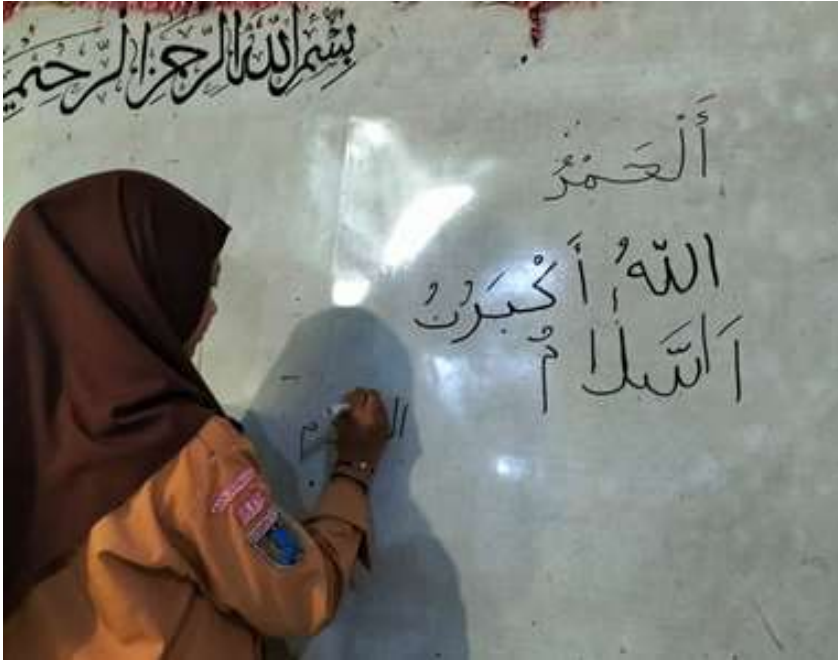 بِسْمِ اللهِ الرَّحْمٰنِ الرَّحِيْمِ
أَلْحَمْرُ
اللهُ أَكْبَرُنُ
اَلسَّلَامُ